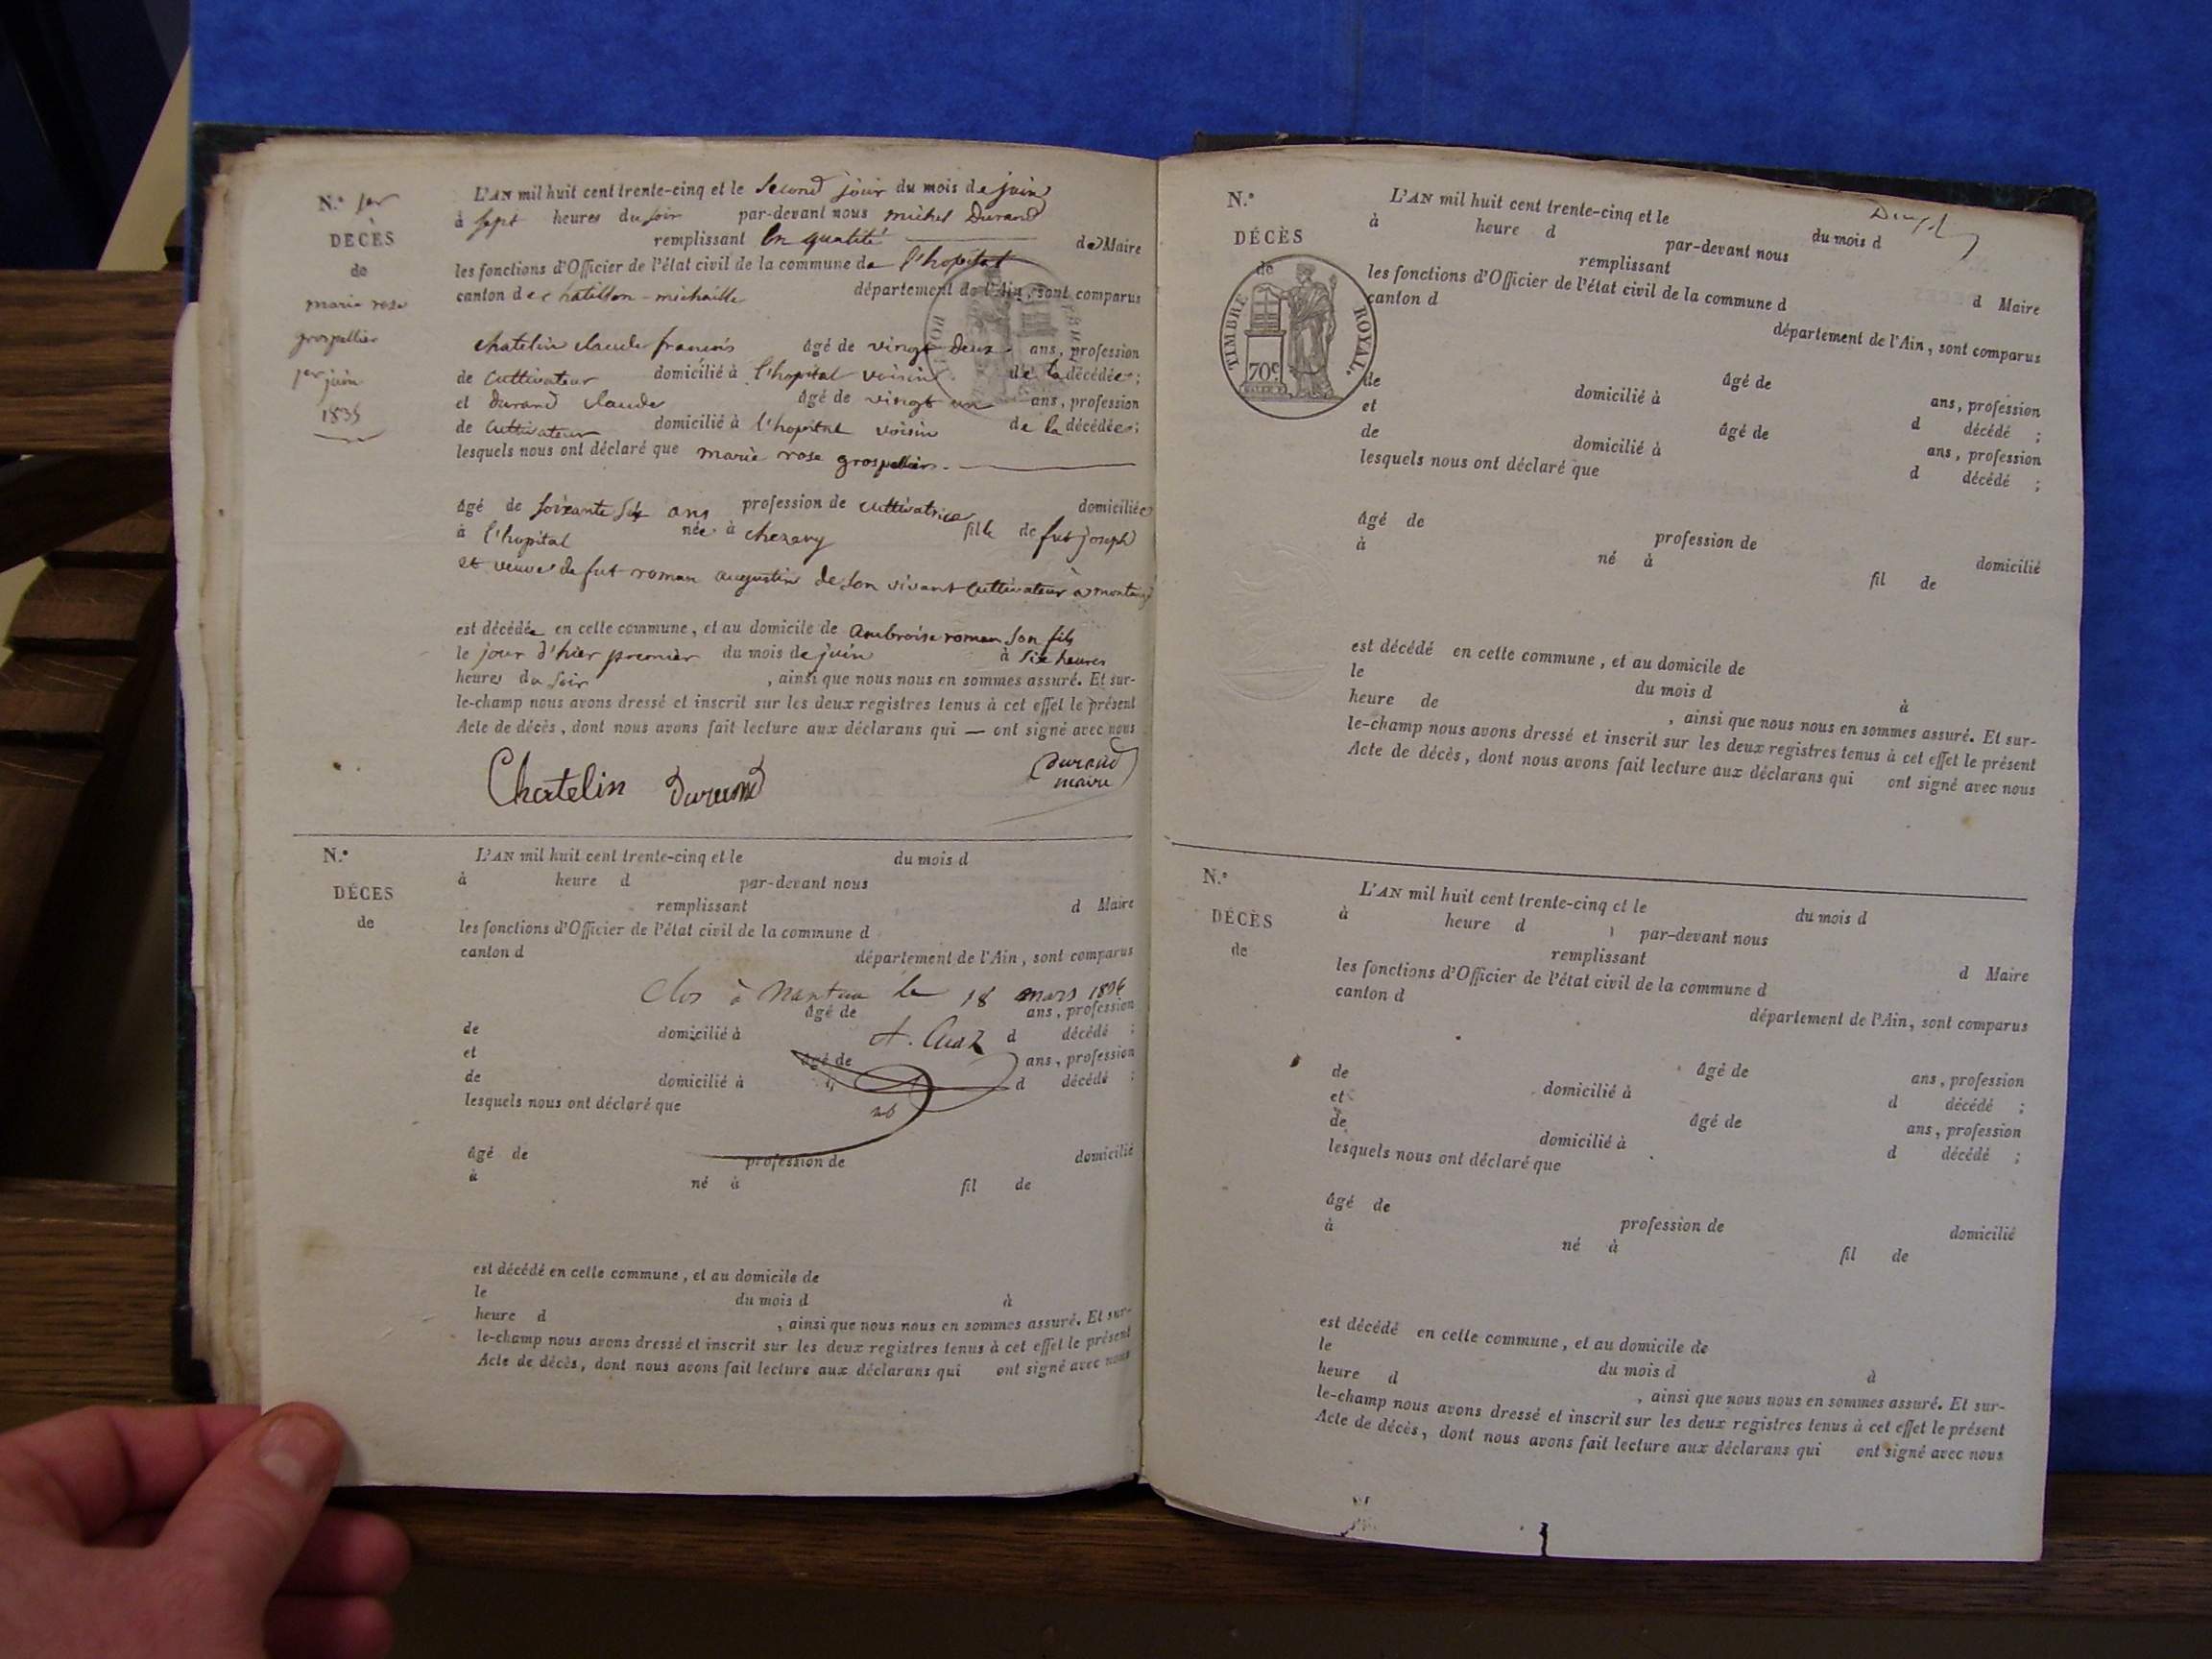 N.° 1er
DÉCÈS
de
marie rose
grospellier
1er juin
1835
L'AN mil huit cent trente-cinq et le Second jour du mois de juin
à Sept heures du soir par-devant nous michel Durand
remplissant En qualité de Maire
les fonctions d'Officier de l'état civil de la commune de l'hopital
canton de chatillon-michaille département de l'Ain, sont comparus
chatelin claude francois âgé de vingt deux ans, profession
de Cultivateur domicilié à l'hopital voisin de la décédée ;
et durand claude âgé de vingt un ans, profession
de Cultivateur domicilié à l'hopital voisin de la décédée ;
lesquels nous ont déclaré que marie rose grospellier
âgé de Soixante Six ans profession de cultivatrice domiciliée
à l'hopital née à chezery fille de fut joseph
et veuve de fut roman augustin de Son vivant Cultivateur à
est décédée en cette commune, et au domicile de Ambroise roman Son fils
le jour d'hier premier du mois de juin à Six heures
heures du Soir , ainsi que nous nous en sommes assuré. Et sur-
le-champ nous avons dressé et inscrit sur les deux registres tenus à cet effet le présent
Acte de décès, dont nous avons fait lecture aux déclarans qui — ont signé avec nous
Chatelin Durand Durand
maire
N.°
DÉCES
de
L'AN mil huit cent trente-cinq et le du mois d
à heure d par-devant nous
remplissant d Maire
les fonctions d'Officier de l'état civil de la commune d
canton d département de l'Ain, sont comparus
Clos à Nantua le 18 mars 1836
âgé de ans, profession
de domicilié à d décédé ;
et âgé de ans, profession
de domicilié à d décédé ;
lesquels nous ont déclaré que
âgé de profession de domicilié
à né à fil de
est décédé en cette commune, et au domicile de
le du mois d à
heure d , ainsi que nous nous en sommes assuré. Et sur-
le-champ nous avons dressé et inscrit sur les deux registres tenus à cet effet le présent
Acte de décès, dont nous avons fait lecture aux déclarans qui ont signé avec nous
N.°
DÉCÈS
de
TIMBRE ROYAL.
70c
L'AN mil huit cent trente-cinq et le du mois d
à heure d par-devant nous
remplissant d Maire
les fonctions d'Officier de l'état civil de la commune d
canton d département de l'Ain, sont comparus
âgé de ans, profession
de domicilié à d décédé ;
et âgé de ans, profession
de domicilié à d décédé ;
lesquels nous ont déclaré que
âgé de profession de domicilié
à né à fil de
est décédé en cette commune, et au domicile de
le du mois d à
heure de , ainsi que nous nous en sommes assuré. Et sur-
le-champ nous avons dressé et inscrit sur les deux registres tenus à cet effet le présent
Acte de décès, dont nous avons fait lecture aux déclarans qui ont signé avec nous
N.°
DÉCÈS
de
L'AN mil huit cent trente-cinq et le du mois d
à heure d par-devant nous
remplissant d Maire
les fonctions d'Officier de l'état civil de la commune d
canton d département de l'Ain, sont comparus
âgé de ans, profession
de domicilié à d décédé ;
et âgé de ans, profession
de domicilié à d décédé ;
lesquels nous ont déclaré que
âgé de profession de domicilié
à né à fil de
est décédé en cette commune, et au domicile de
le du mois d à
heure d , ainsi que nous nous en sommes assuré. Et sur-
le-champ nous avons dressé et inscrit sur les deux registres tenus à cet effet le présent
Acte de décès, dont nous avons fait lecture aux déclarans qui ont signé avec nous